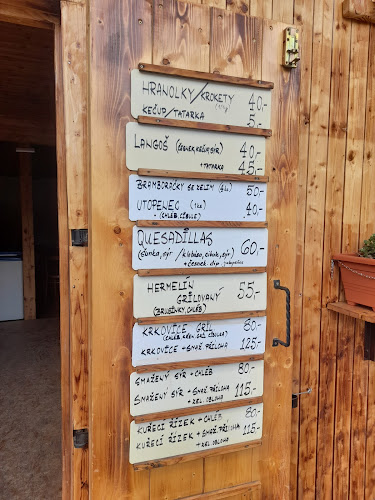 HRANOLKY/KROKETY 40,-
KEČUP/TATARKA 5,-
LANGOŠ (ČESNEK, KEČUP, SÝR) 40,-
+ TATARKA 45,-
BRAMBORÁČKY SE ZELÍM 50,-
UTOPENEC (1ks) 40,-
+ (CHLÉB, CIBULE)
QUESADILLAS 60,-
(šunka, sýr / klobása, cibule, sýr)
+ česnek. dip, jalapeños
HERMELÍN
GRILOVANÝ 55,-
(BRUSINKY, CHLÉB)
KRKOVICE GRIL 80,-
KRKOVICE + SMAŽ. PŘÍLOHA 125,-
SMAŽENÝ SÝR + CHLÉB 80,-
SMAŽENÝ SÝR + SMAŽ. PŘÍLOHA 115,-
+ ZEL. OBLOHA
KUŘECÍ ŘÍZEK + CHLÉB 80,-
KUŘECÍ ŘÍZEK + SMAŽ. PŘÍLOHA 115,-
+ ZEL. OBLOHA